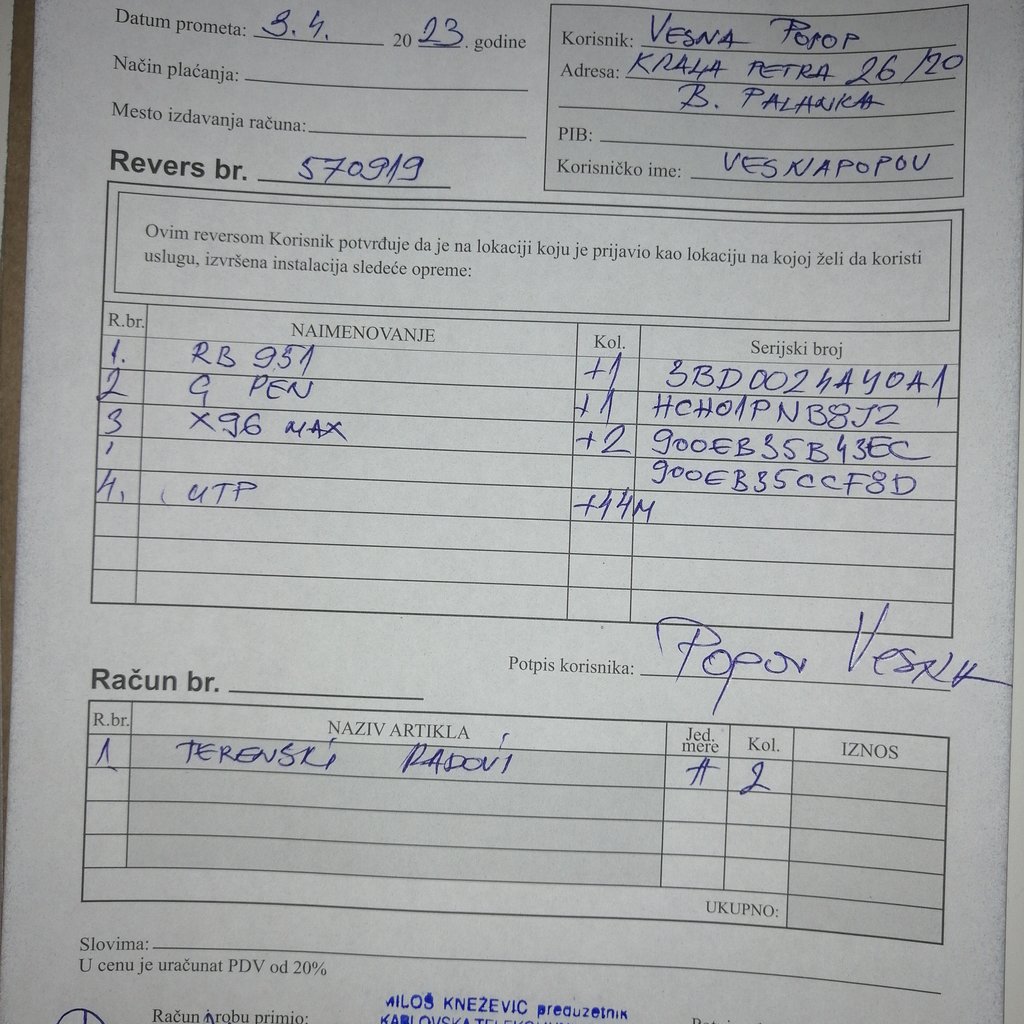 Datum prometa: 3. 4. 2023. godine
Način plaćanja:
Mesto izdavanja računa:
Korisnik: VESNA POPOP
Adresa: KRALJA PETRA 26/20
B. PALANKA
PIB:
Korisničko ime: VESNAPOPOV
Revers br. 570919
Ovim reversom Korisnik potvrđuje da je na lokaciji koju je prijavio kao lokaciju na kojoj želi da koristi
uslugu, izvršena instalacija sledeće opreme:
R.br. NAIMENOVANJE Kol. Serijski broj
1. RB 951 +1 3BD0024A40A1
2 G PEN +1 HCH01PNB8J2
3 X96 MAX +2 900EB35B43EC
900EB35CCF8D
4. UTP +44M
Potpis korisnika: Popov Vesna
Račun br.
R.br. NAZIV ARTIKLA Jed. mere Kol. IZNOS
1 TERENSKI RADOVI H 2
UKUPNO:
Slovima:
U cenu je uračunat PDV od 20%
Račun i robu primio:
MILOŠ KNEŽEVIĆ preduzetnik